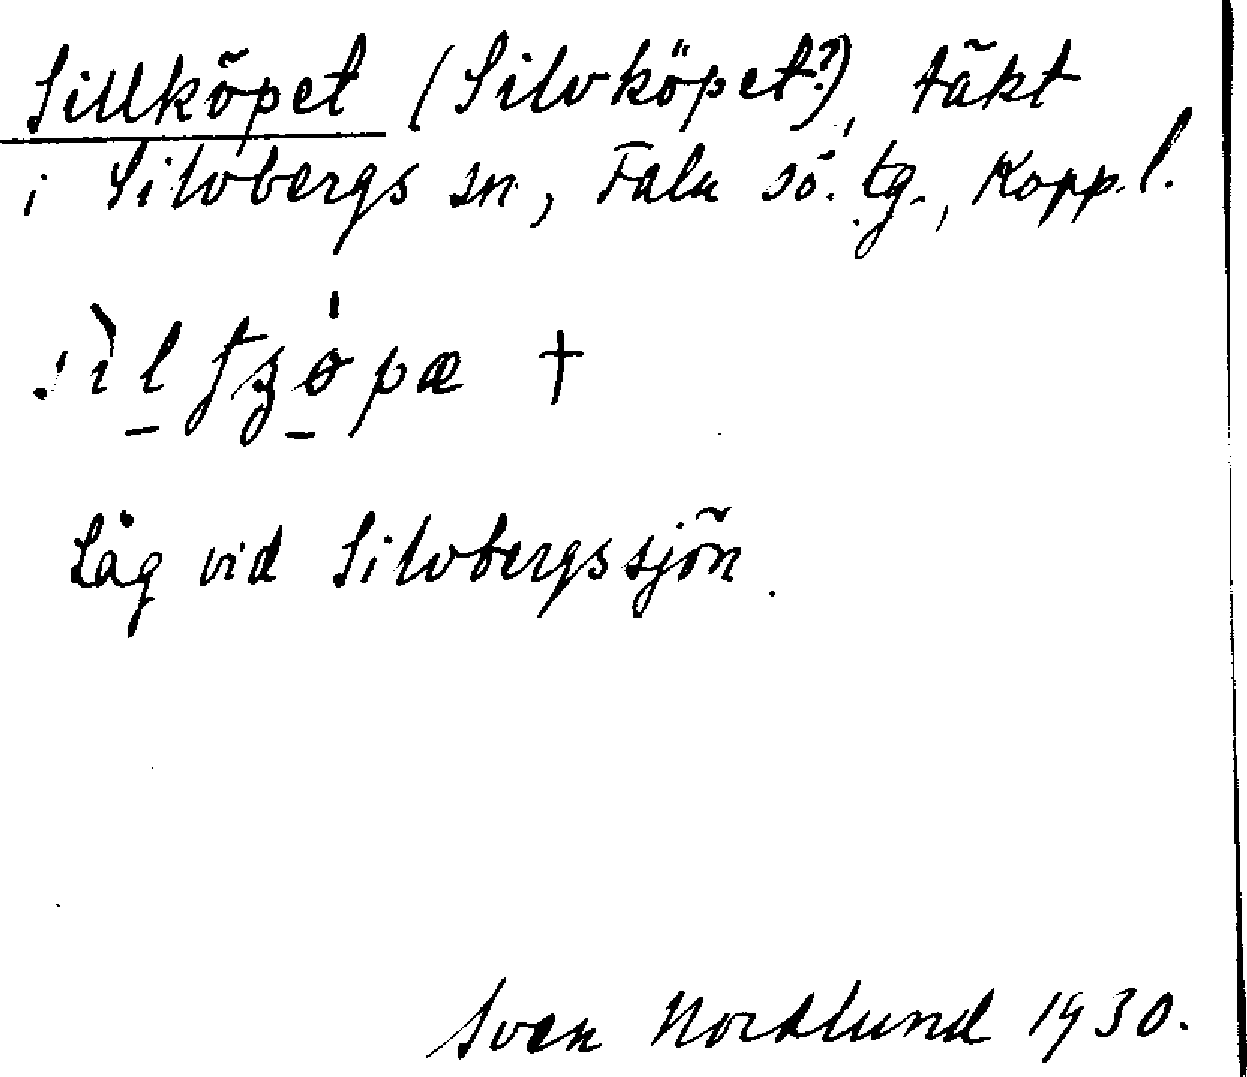 Sillköpet (Silvköpet?), täkt
i Silvbergs sn, Falu sö. tg., Kopp. l.
†
Låg vid Silvbergssjön.
Sven Nordlund 1930.